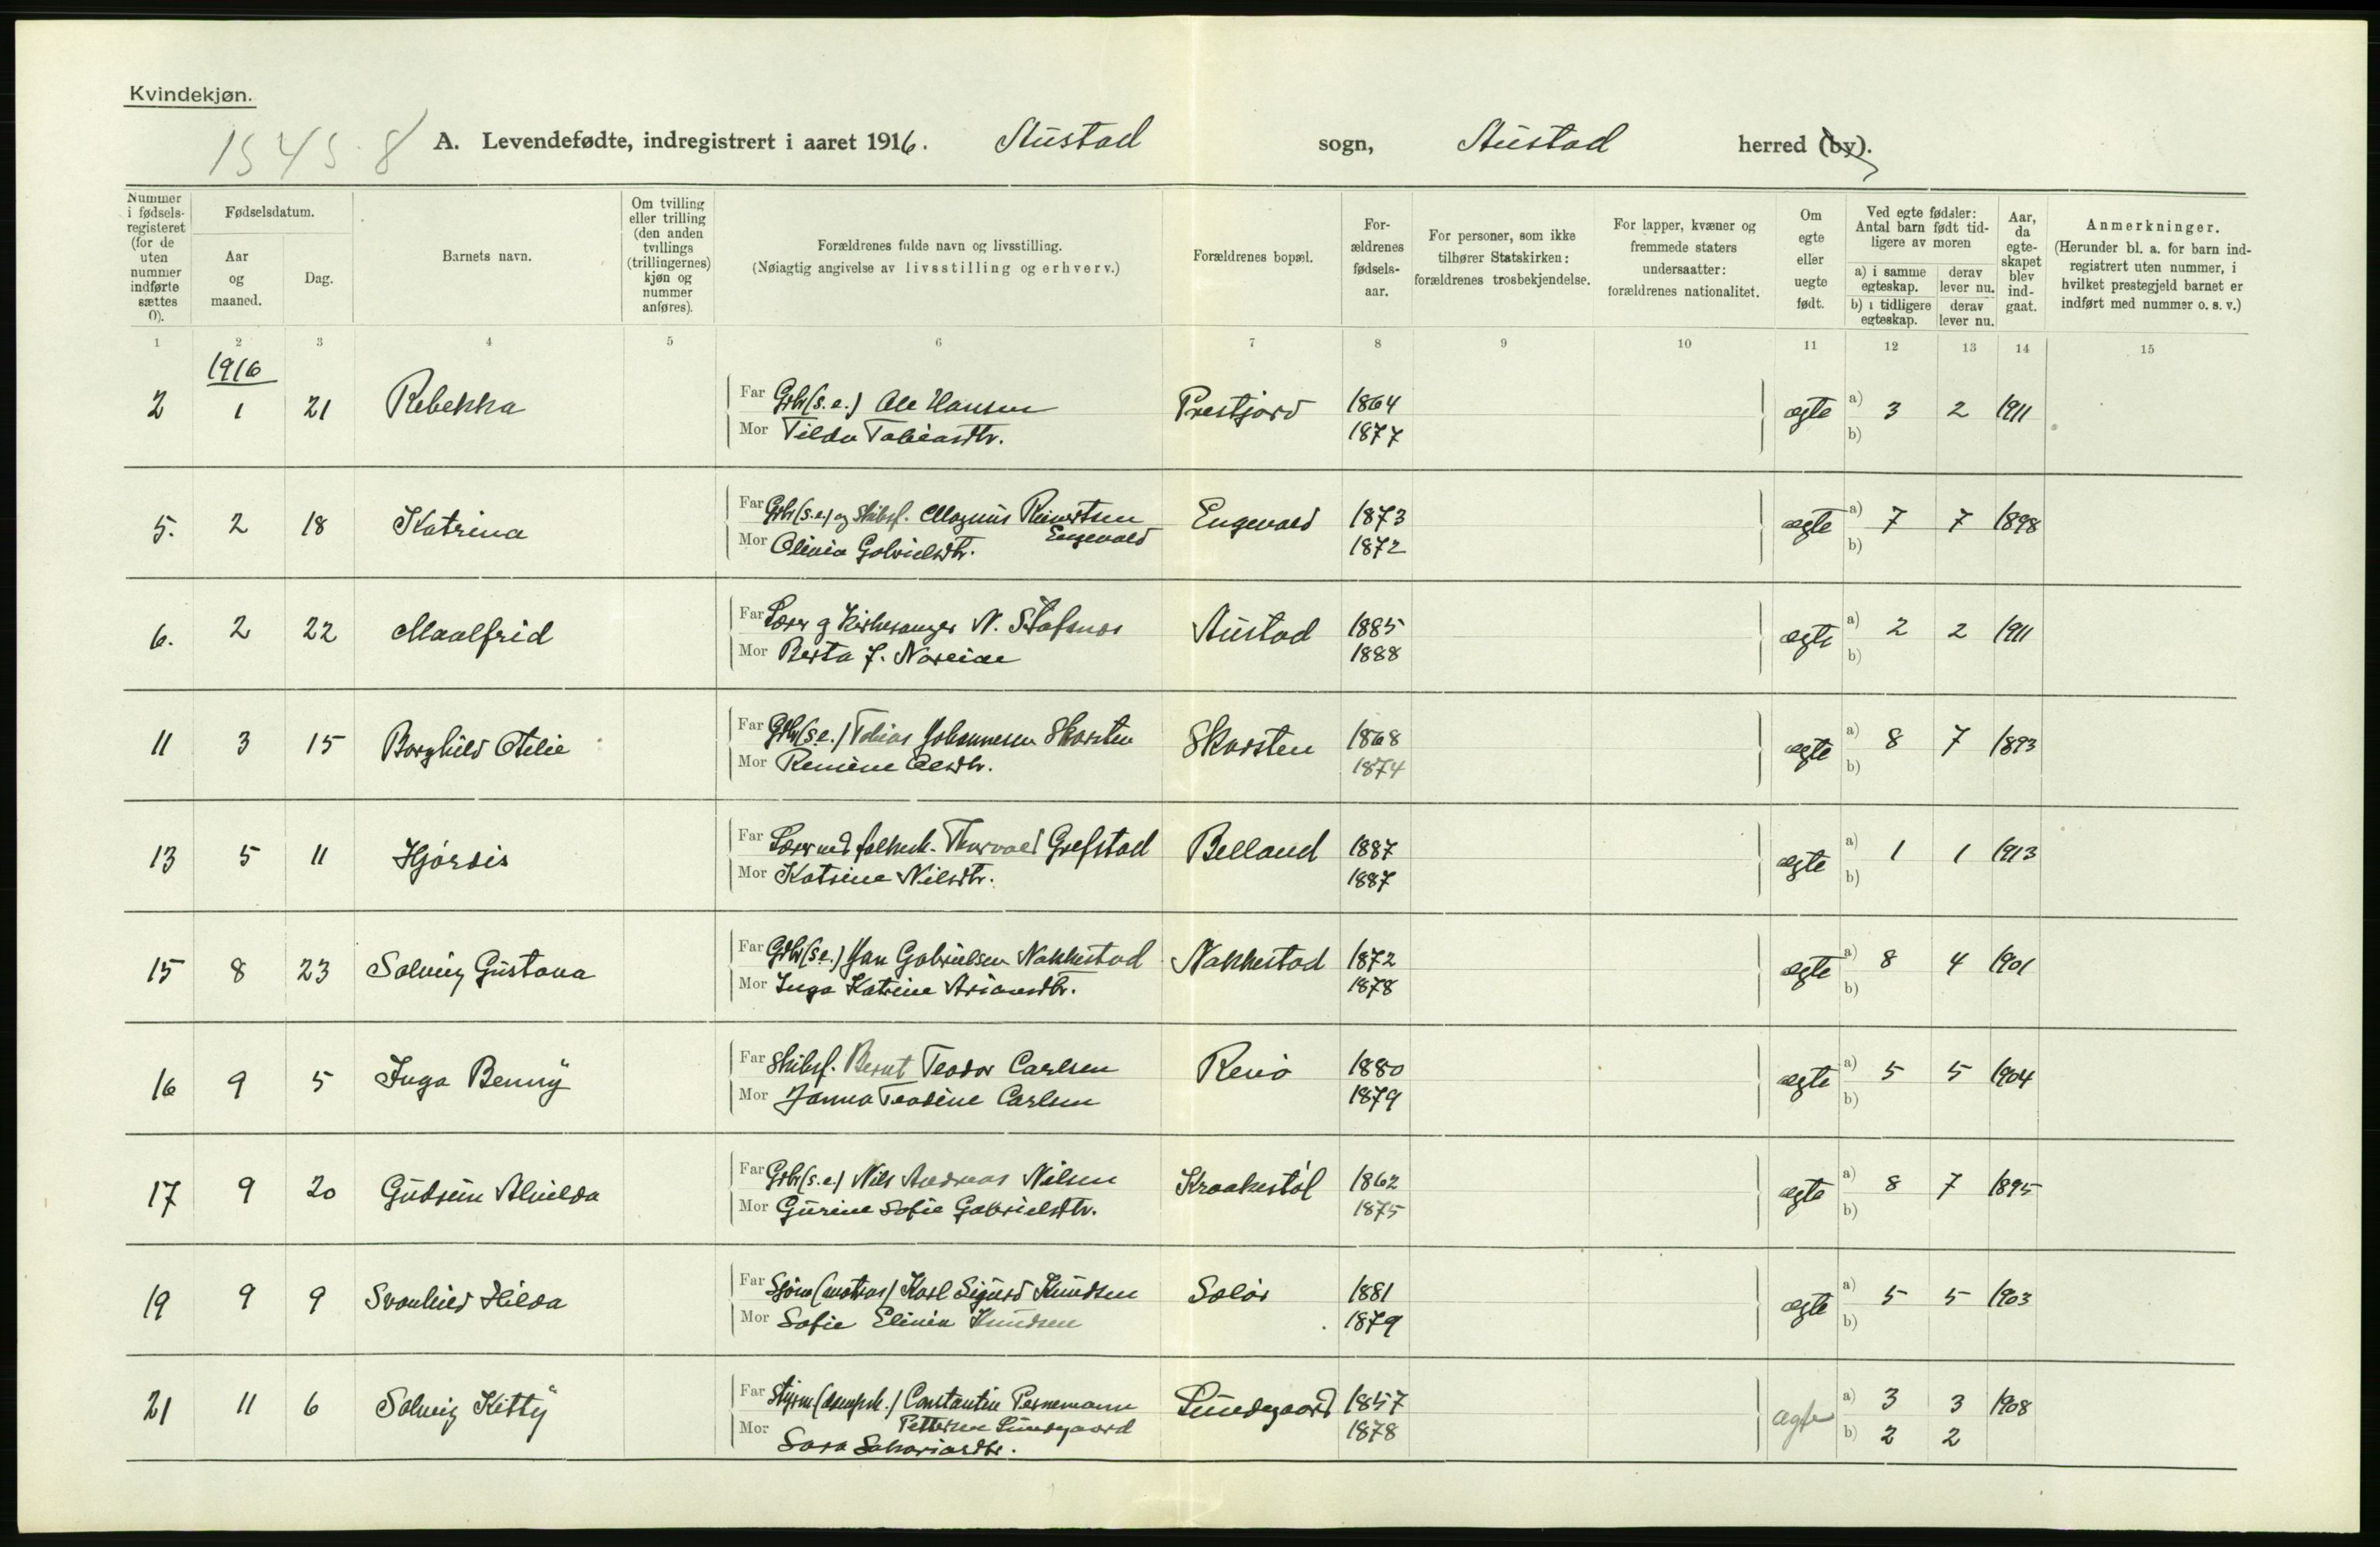 Kvindekjøn.
1545 8 A. Levendefødte, indregistrert i aaret 1916. Austad sogn, Austad herred (by).
Nummer i fødsels-registeret (for de uten nummer indførte sættes 0).
Fødselsdatum.
Aar og maaned.
Dag.
Barnets navn.
Om tvilling eller trilling (den anden tvillings (trillingernes) kjøn og nummer anføres).
Forældrenes fulde navn og livsstilling.
(Nøiagtig angivelse av livsstilling og erhverv.)
Forældrenes bopæl.
For-ældrenes fødsels-aar.
For personer, som ikke tilhører Statskirken: forældrenes trosbekjendelse.
For lapper, kvæner og fremmede staters undersaatter: forældrenes nationalitet.
Om egte eller uegte født.
Ved egte fødsler: Antal barn født tid-ligere av moren
a) i samme egteskap. derav lever nu.
b) i tidligere egteskap. derav lever nu.
Aar, da egte-skapet blev ind-gaat.
Anmerkninger.
(Herunder bl. a. for barn ind-registrert uten nummer, i hvilket prestegjeld barnet er indført med nummer o. s. v.)
1 2 3 4 5 6 7 8 9 10 11 12 13 14 15
1916
2 1 21 Rebekka Far Grbr (s.e.) Ole Hansen Prestjord 1864 egte a) 3 2 1911
Mor Tilda Tobiasdtr. 1877 b)
5. 2 18 Katrina Far Grbr (s.e.) og Skibsf. Magnus Reinertsen Engevold Engevold 1873 egte a) 7 7 1898
Mor Olinia Gabrielsdtr. 1872 b)
6. 2 22 Maalfrid Far Lærer g Kirkesanger N. Stafsnes Austad 1885 egte a) 2 2 1911
Mor Berta J. 1888 b)
11 3 15 Borghild Otelie Far Grbr (s.e.) Tobias Johannesen Skarsten Skarsten 1868 egte a) 8 7 1893
Mor Remine Olesdtr. 1874 b)
13 5 11 Hjördis Far Lærer ved folkesk. Thorvald Grefstad Belland 1887 egte a) 1 1 1913
Mor Katrine Nilsdtr. 1887 b)
15 8 23 Solveig Gustava Far Grbr (s.e.) Jan Gabrielsen Nakkestad Nakkestad 1872 egte a) 8 4 1901
Mor Inga Katrine 1878 b)
16 9 5 Inga Benny Far Skibsf. Bernt Teodor Carlsen Renö 1880 egte a) 5 5 1904
Mor Janna Teodine Carlsen 1879 b)
17 9 20 Gudrun Alvilda Far Grbr (s.e.) Nils Andreas Nilsen Kraakestöl 1862 egte a) 8 7 1895
Mor Gurine Sofie Gabrielsdtr. 1875 b)
19 9 9 Svanhild Hilda Far Sjöm (matros) Karl Sigurd Knudsen Selör 1881 egte a) 5 5 1903
Mor Sofie Elinia Knudsen 1879 b)
21 11 6 Solveig Kitty Far Styrm. (dampsk.) Constantin Pernemann Pettersen Lundegaard Lundegaard 1857 egte a) 3 3 1908
Mor Sara Sakariasdtr. 1878 b) 2 2